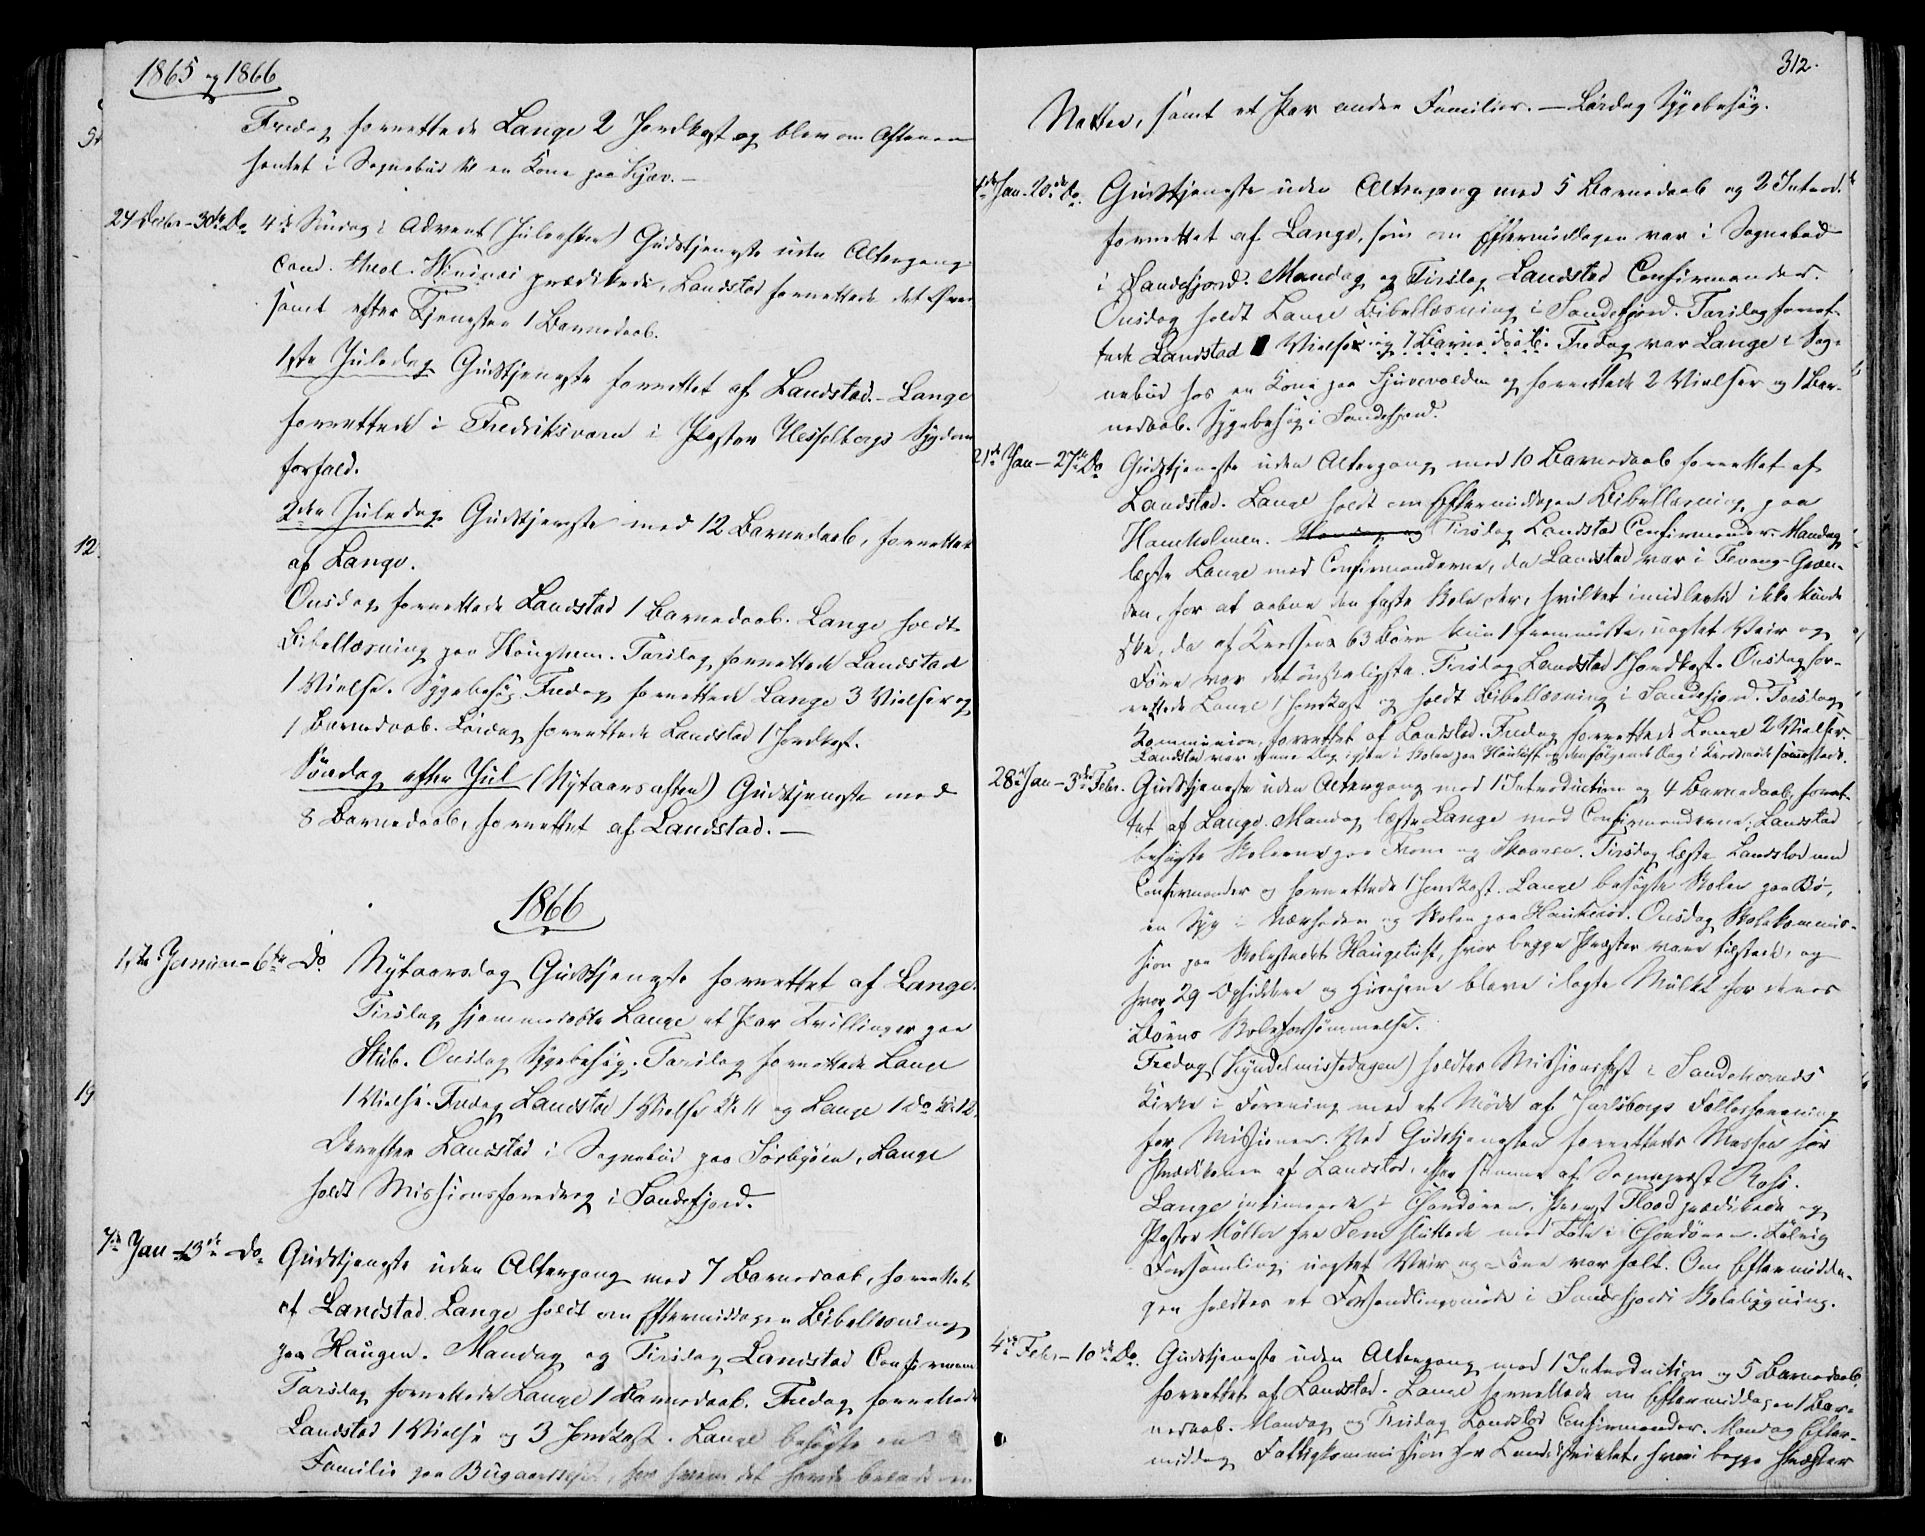 1865 og 1866
Fredag forrettede Lange 2 Jordkast og blev om Aftenen
hentet i Sognebud til en Kone paa
24 Decbr - 30te Do 4de Søndag i Advent (Juleaften) Gudstjeneste uden Altergang
Cand. theol. prædikede, Landstad forrettede det Øvrige
samt efter Tjenesten 1 Barnedaab.
1ste Juledag Gudstjeneste forrettet af Landstad. - Lange
forrettede i Fredriksværn i Pastor Hesselbergs Sygdoms
forfald.
2den Juledag Gudstjeneste med 12 Barnedaab, forrettet
af Lange.
Onsdag forrettede Landstad 1 Barnedaab. Lange holdt
Bibellæsning paa Haughem. Torsdag forrettede Landstad
1 Vielse. Sygebesøg. Fredag forrettede Lange 3 Vielser og
1 Barnedaab. Lørdag forrettede Landstad 1 Jordkast.
Søndag efter Jul (Nytaarsaften) Gudstjeneste med
8 Barnedaab, forrettet af Landstad. —
1866
1ste Januar - 6te Do Nytaarsdag Gudstjeneste forrettet af Lange.
Tirsdag hjemmedøbte Lange et Par Tvillinger paa
Stub. Onsdag Sygebesøg. Torsdag forrettede Lange
1 Vielse. Fredag Landstad 1 Vielse Kl. 11 og Lange 1 Do Kl. 12
Derefter Landstad i Sognebud paa Sørbyøen, Lange
holdt Missionsforedrag i Sandefjord.
7de Jan - 13de Do. Gudstjeneste uden Altergang med 7 Barnedaab, forrettet
af Landstad. Lange holdt om Eftermiddagen Bibellæsning
paa Haugen. Mandag og Tirsdag Landstad Confirmand.
Torsdag forrettede Lange 1 Barnedaab. Fredag forrettede
Landstad 1 Vielse og 3 Jordkast. Lange besøgte en
Familie paa
312.
Natten, samt et Par andre Familier. — Lørdag Sygebesøg.
14de Jan - 20de Do. Gudstjeneste uden Altergang med 5 Barnedaab og 2 Introd.
forrettet af Lange, som om Eftermiddagen var i Sognebud
i Sandefjord. Mandag og Tirsdag Landstad Confirmander.
Onsdag holdt Lange Bibellæsning i Sandefjord. Torsdag forret-
tede Landstad Vielse og 1 Barnedaab. Fredag var Lange i Sog-
nebud hos en Kone paa og forrettede 2 Vielser og 1 Bar-
nedaab. Sygebesøg i Sandefjord.
21de Jan - 27de Do Gudstjeneste uden Altergang med 10 Barnedaab forrettet af
Landstad. Lange holdt om Eftermiddagen Bibellæsning paa
Haneholmen. Mandag og Tirsdag Landstad Confirmander. Mandag
læste Lange med Confirmanderne, da Landstad var i Fevang-Græn-
den, for at aabne den faste Skole der, hvilket imidlertid ikke kunde
ske, da af Kredsens 63 Børn kun 1 fremmødte, uagtet Veir og
Føre var det ønskeligste. Tirsdag Landstad 1 Jordkast. Onsdag for-
rettede Lange 1 Jordkast og holdt Bibellæsning i Sandefjord. Torsdag
Kommunion, forrettet af Landstad. Fredag forrettede Lange 2 Vielser.
Landstad var denne Dag i Skolen paa og den følgende Dag i
28de Jan - 3die Febr. Gudstjeneste uden Altergang med 1 Introduction og 4 Barnedaab, forret-
tet af Lange. Mandag læste Lange med Confirmanderne, Landstad
besøgte Skolerne paa og Skaaren. Tirsdag læste Landstad med
Confirmander og forrettede 1 Jordkast. Lange besøgte Skolen paa Bø,
en Syg i Nærheden og Skolen paa Haukerød. Onsdag Skolekommis-
sion paa Skolestedet Haugetuft, hvor begge Præster vare tilstede, og
hvor 29 Opsiddere og Husejere bleve ilagte Mulkt for deres
Børns Skoleforsømmelse.
Fredag (Kyndelmissedagen) holdtes Missionsfest i Sandeherreds
Kirke i Forening med et Møde af Jarlsbergs Fællesforening
for Missionen. Ved Gudstjenesten forrettedes Messen før
Prædikenen af Landstad, efter samme af Sognepræst Rosi.
Lange intimerede i Chordøren, Provst Flood prædikede og
Pastor Møller fra Sem sluttede med Tale i Chordøren. Talrig
Forsamling, uagtet Veir og Føre var fælt. Om Eftermidda-
gen holdtes et Forhandlingsmøde i Sandefjords Skolebygning.
4de Febr. - 10de Do. Gudstjeneste uden Altergang med 1 Introduction og 5 Barnedaab,
forrettet af Landstad. Lange forrettede om Eftermiddagen 1 Bar-
nedaab. Mandag og Tirsdag Landstad Confirmander. Mandag Efter-
middag Fattigkommission for Landdistriktet, hvori begge Præster